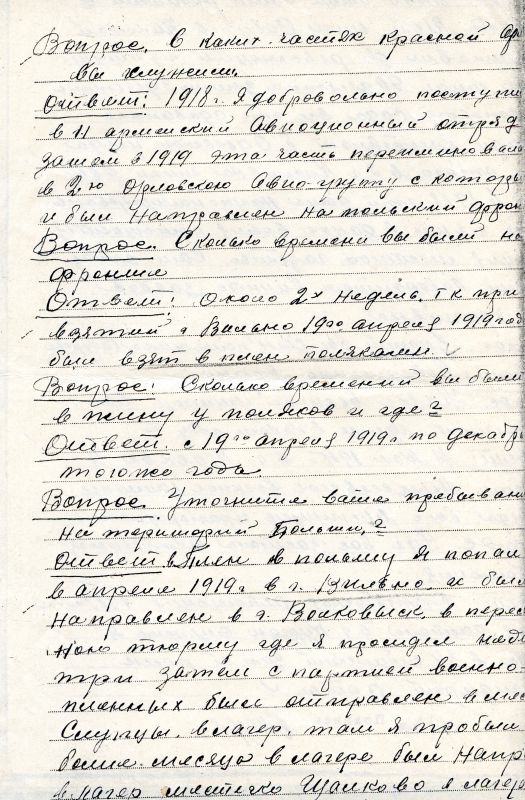 Вопрос. в каких частях красной ар
вы служили.
Ответ: 1918г. Я добровольно поступил
в 11 армейский Авиоционный отряд
затем в 1919 эта часть переимнова
в 2ю орловскою Авио-групу с которы
и был направлен на польский фрон
Вопрос. Сколько времени вы были на
фронте
Ответ: около 2х недель, т к при
взятий г Вильно 19го апреля 1919 год
был взят в плен поляками
Вопрос: Сколько времений вы были
в плену у поляков и где?
Ответ. с 19го апреля 1919г по декабрь
того же года.
Вопрос уточните ваше пребыван
на территорий Польши,?
Ответ в Плен в польшу я попал
в апреле 1919г в г. Вильно, и был
направлен в г. Волковыск, в перес
ною тюрму где я просидел неде
три затем с партией военно-
пленных был отправлен в мес
в лагер. там я пробыл
более месяца в лагере был напр
в лагер местечко Щалково в лагер